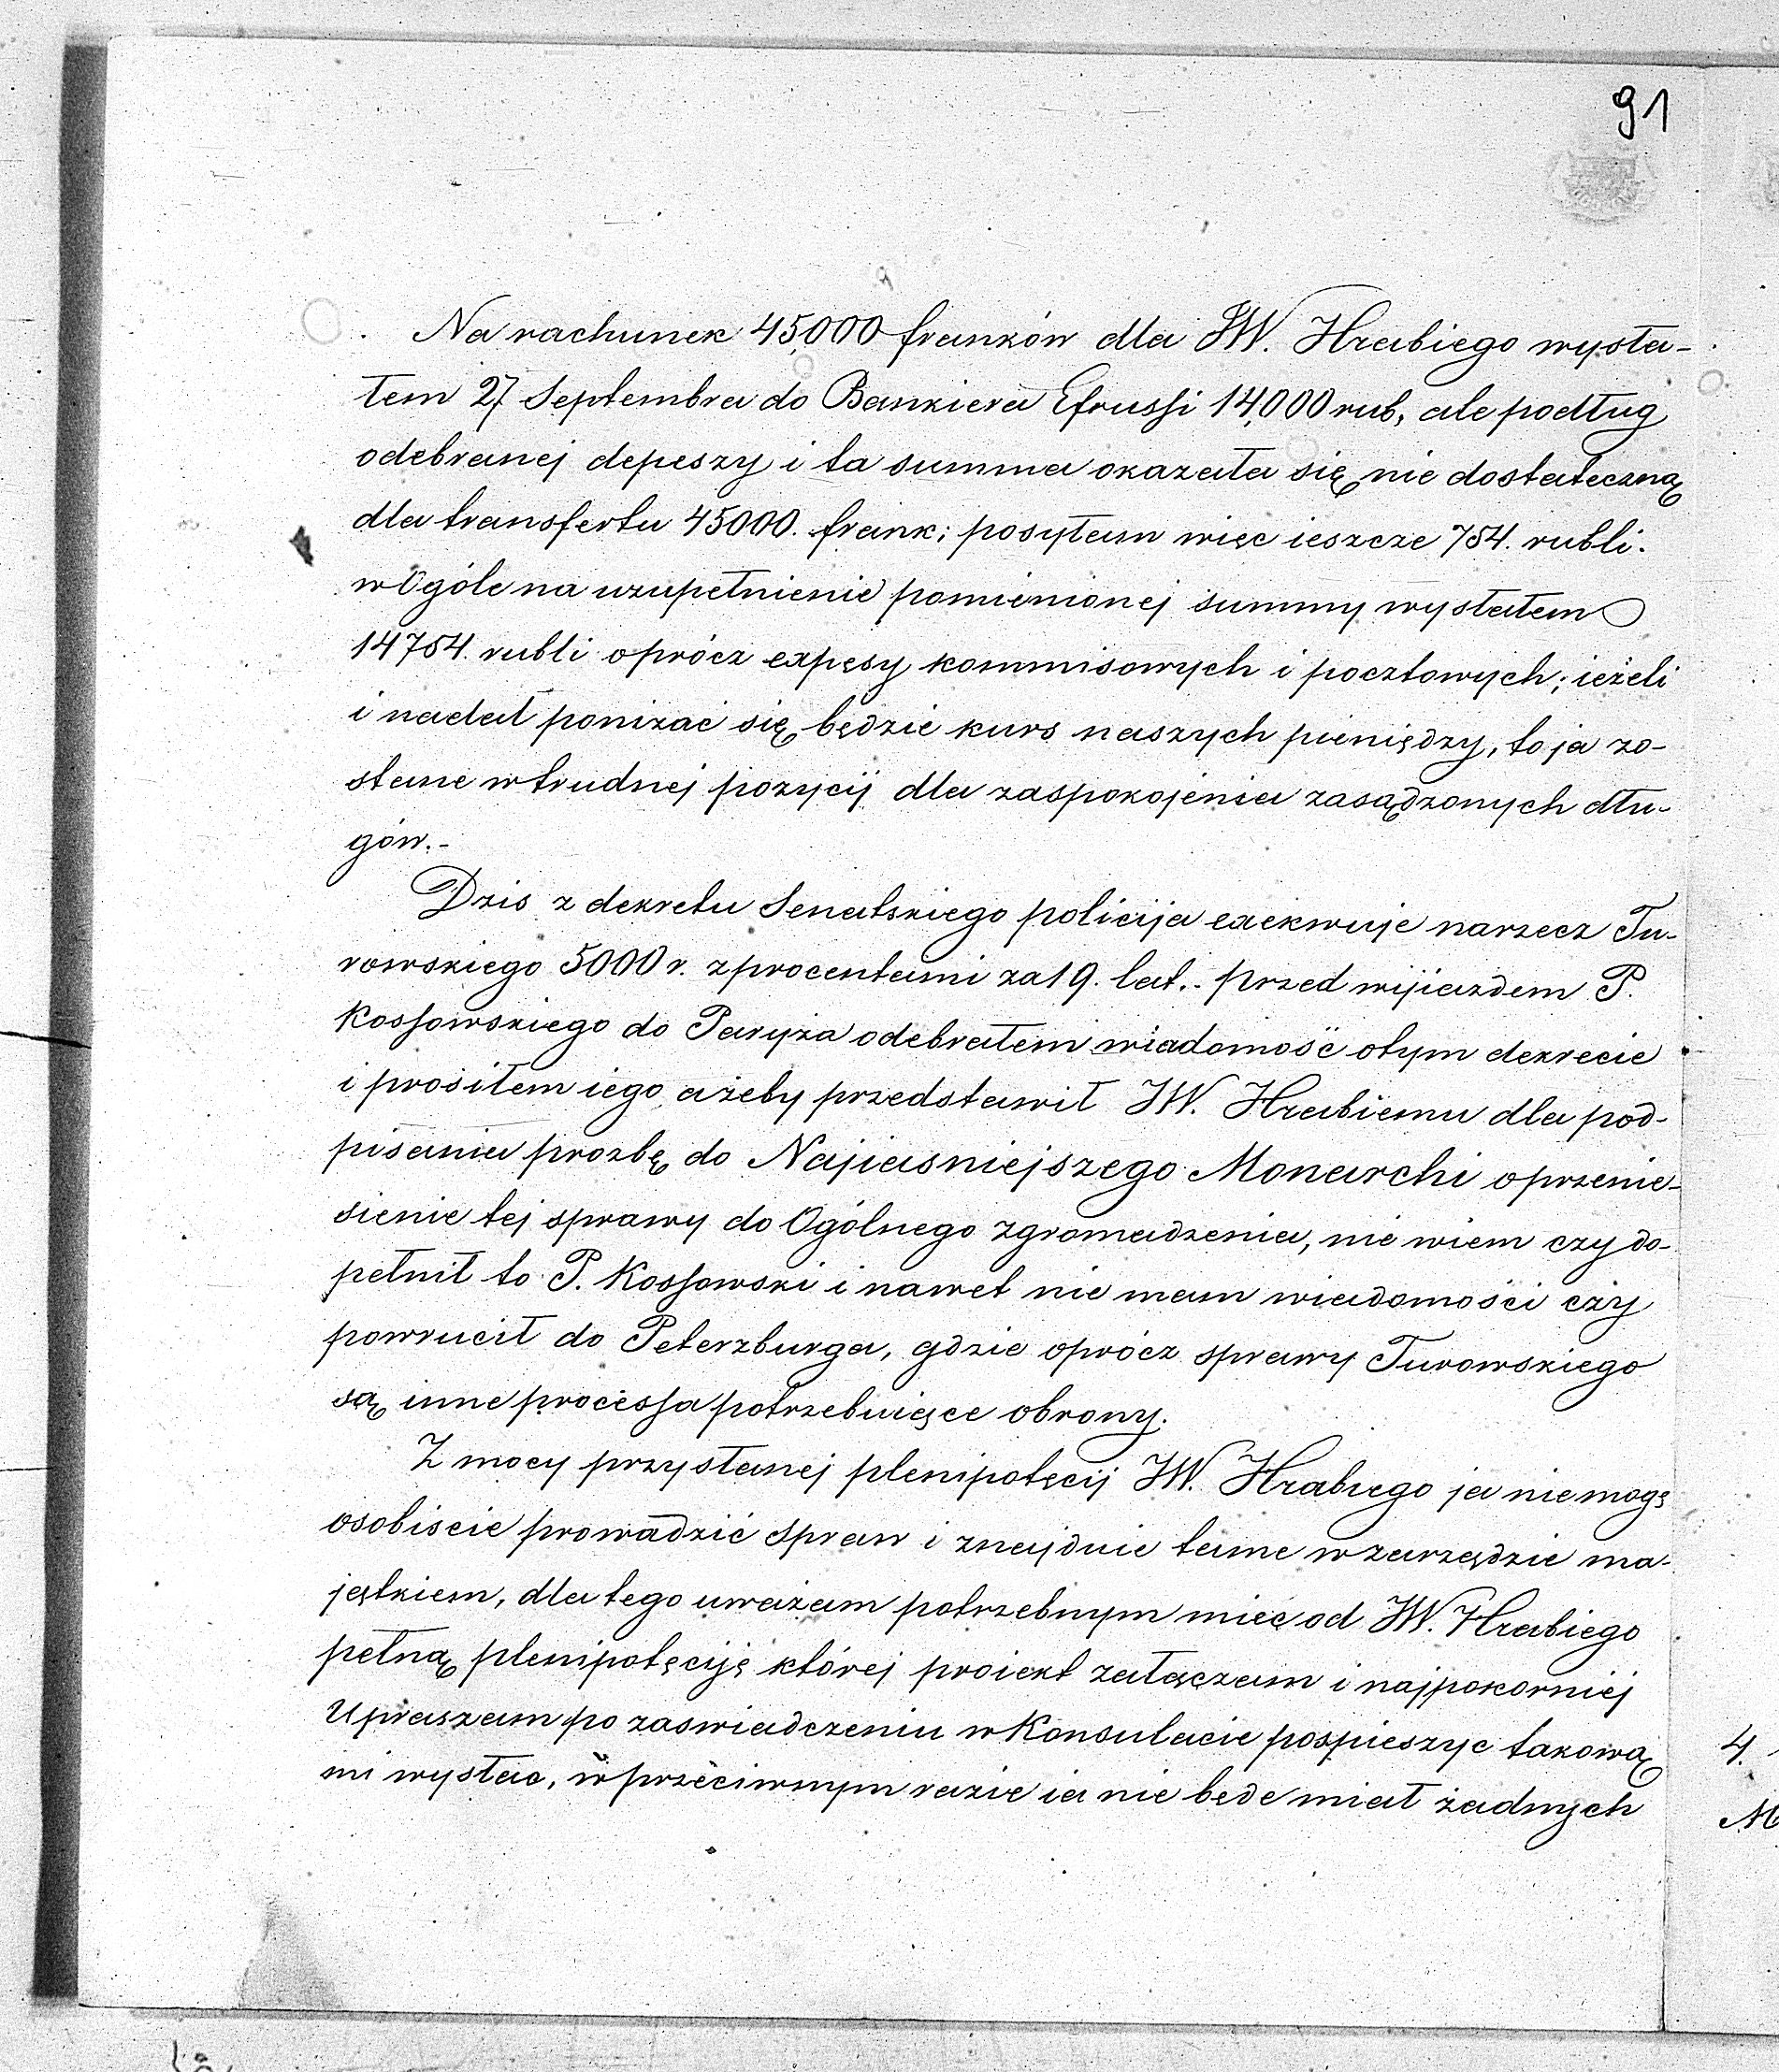 91
Na rachunek 45,000 franków dla JW. Hrabiego wysła-
łem 27 Septembra do Bankiera Efrussi 14,000 rub, ale podług
odebranej depeszy i ta summa okazała się nie dostateczną
dla transfertu 45000. frank; posyłam więc ieszcze 754. rubli.
w Ogóle na uzupełnienie pomienionej summy wysłałem
14754. rubli oprócz expęsy kommisowych i pocztowych; ieżeli
i nadal poniżać się będzie kurs naszych pieniędzy, to ja zo-
stane w trudnej pozycij dla zaspokojenia zasądzonych dłu-
gów.-
Dzis z dekretu Senatskiego policija exekwuje narzecz Tu-
rowskiego 5000 r. z procentami za 19. lat.. przed wyjiazdem P.
Kossowskiego do Paryża odebrałem wiadomość otym dekrecie
i prosiłem iego ażeby przedstawił JW. Hrabiemu dla pod-
pisania prozbę do Najiasniejszego Monarchi oprzenie-
sienie tej sprawy do Ogólnego zgromadzenia, nie wiem czy do-
pełnił to P. Kossowski i nawet nie mam wiadomości czy
powrucił do Peterzburga, gdzie oprócz sprawy Turowskiego
są inne processa potrzebuięce obrony.
Z mocy przysłanej plenipotęcij JW. Hrabiego ja niemogę
osobiscie prowadzić spraw i znajduie tame w zarzędzie ma-
jętkiem, dla tego uważam potrzebnym miec od JW. Hrabiego
pełną plenipotęciję której proiekt załączam i najpokorniej
Upraszam po zaswiadczeniu w Konsulacie pospieszyc takową
mi wysłac, w przeciwnym razie ia nie bede miał żadnych
4.
M